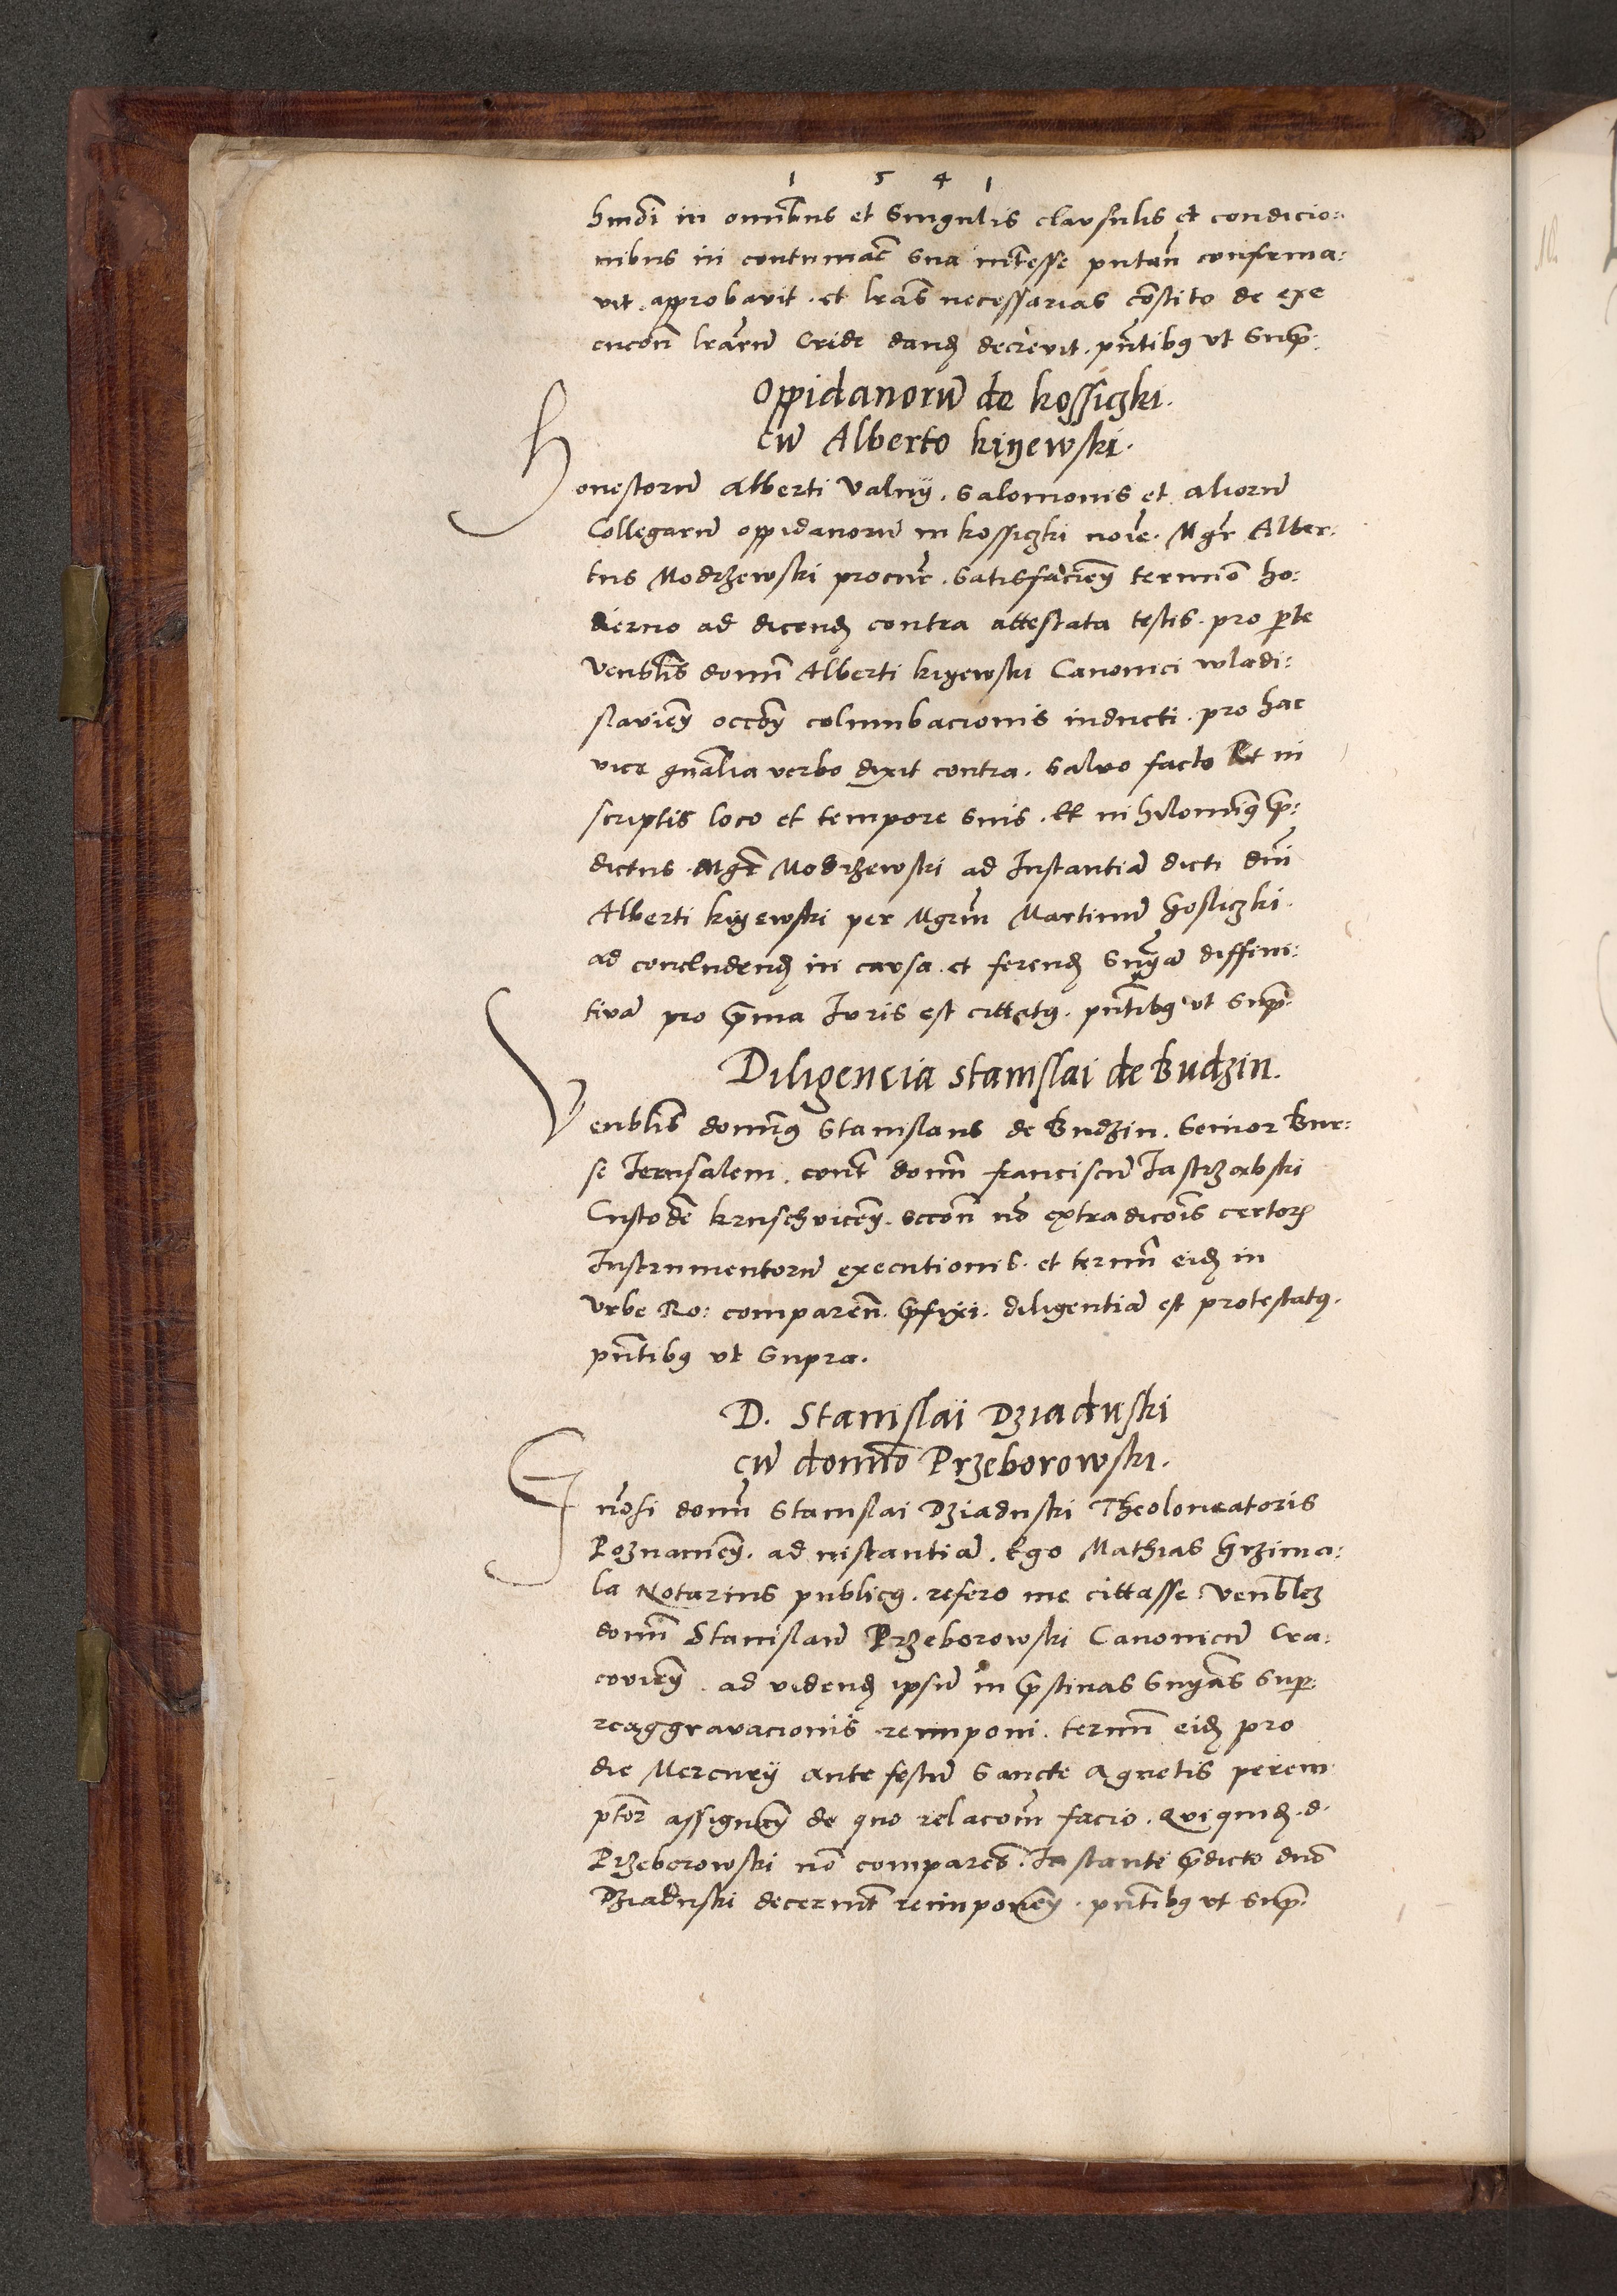 1 5 4 1
hmõi in omībus et singulis clausulis et condicio:
nibus in contumac̃ sua interesse putañ confirma:
vit approbavit. et l̃ras necessarias c̃ostito de exe
cucõn l̃rarũ Cride dand̃ decrevit. pñtibꝯ vt Sup̃.
Oppidanorũ de kossiczki.
cũ Alberto kiyewski.
Honestorũ Alberti Valny. Salomonis et aliorũ
Collegarũ oppidanorũ in kossiczki noĩe. Mgr̃ Alber:
tus Modrzewski procur̃. satisfacieñ termino ho:
dierno ad dicend̃ contra attestata testis. pro p̃te
Venb̃lis domĩ Alberti kiyewski Canonici wladi:
slavieñ occõñ columbacionis inducti. pro hac
vice gñalia verbo dixit contra. salvo facto Et in
scriptis loco et tempore suis. Et nihilominꝯ p̃:
dictus Mgr̃ Modrzewski ad Instantiã dicti dñi
Alberti kiyewski per Mgrũm Martinũ Gosliczki.
ad concludend̃ in causa et ferend̃ Sñiã diffini:
tivã pro p̃ma Iuris est cittatꝯ. pñtibꝯ vt Sup̃.
Diligencia Stanislai de Budzin.
Venb̃lis dominꝯ Stanislaus de Budzin. Senior Bur:
se Ierusalem. cont̃ domĩ franciscũ Jastrzabski
Custodẽ kruschvicẽñ. occõñ nõ extradicõis certoꝝ
Instrumentorũ executionis. et termĩ eid̃ in
Urbe Ro: compareñ. p̃fixi. diligentiã est protestatꝯ.
pñtibꝯ vt Supra.
D. Stanislai Dziaduski
cũ domĩo Przeborowski.
Gñosi domĩ Stanislai Dziaduski Theoloneatoris
Poznanieñ. ad instantiã. Ego Mathias Grzima:
la Notarius publicꝯ. refero me cittasse Venb̃lẽ
domĩ Stanislaũ Przeborowski Canonicũ Cra:
covieñ. ad vidend̃ ipsũ in p̃stinas Sñias Sup̃.
reaggravacionis reimponi. termĩ eid̃ pro
die Mercury ante festũ Sancte Agnetis perem
ptor̃ assigneñ de quo relacõm facio. Qui quid̃. d.
Przeborowski nõ comparẽs. Instante p̃dicto dño
Dziaduski decernit reimponeñ. pñtibꝯ vt Sup̃.